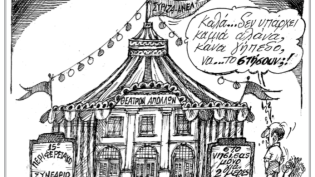 ΣΥΡΙΖΑ-ΑΝΕΛ
Καλά... Δεν υπάρχει
καμιά αλάνα,
κανα γήπεδο,
να... το στήσουν;!
ΘΕΑΤΡΟΝ ΑΠΟΛΛΩΝ
15ο
ΠΕΡΙΦΕΡΕΙΑΚΟ
ΣΥΝΕΔΡΙΟ
ΣΤΟ
ΜΟΝΟ
2 ΜΕΡΕΣ